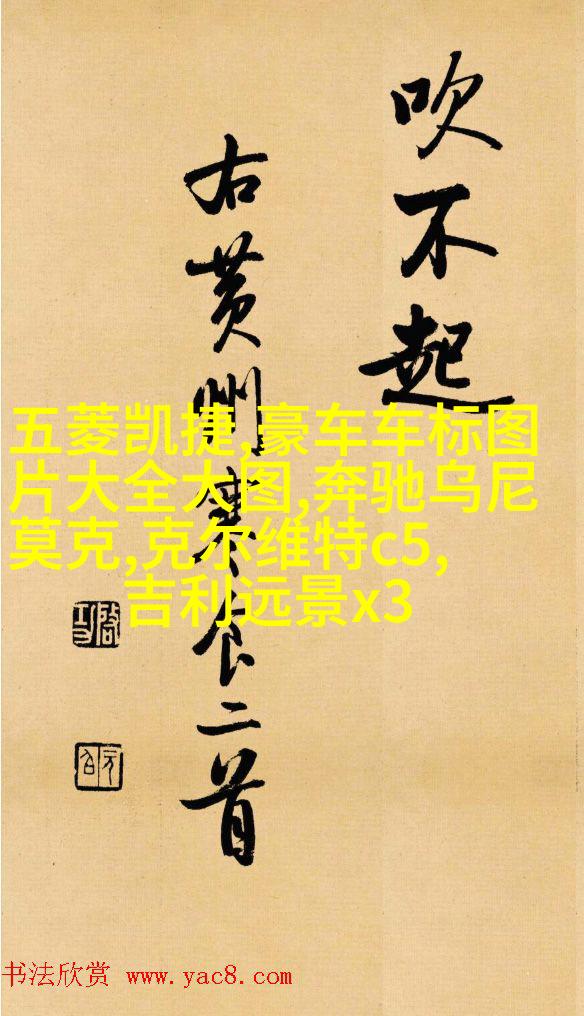 吹不起
右黄州寒食二首
五菱凯捷,豪车车标图
片大全大图,奔驰乌尼
莫克,克尔维特c5,
吉利远景x3
启功
元白
书法欣赏 www.yac8.com